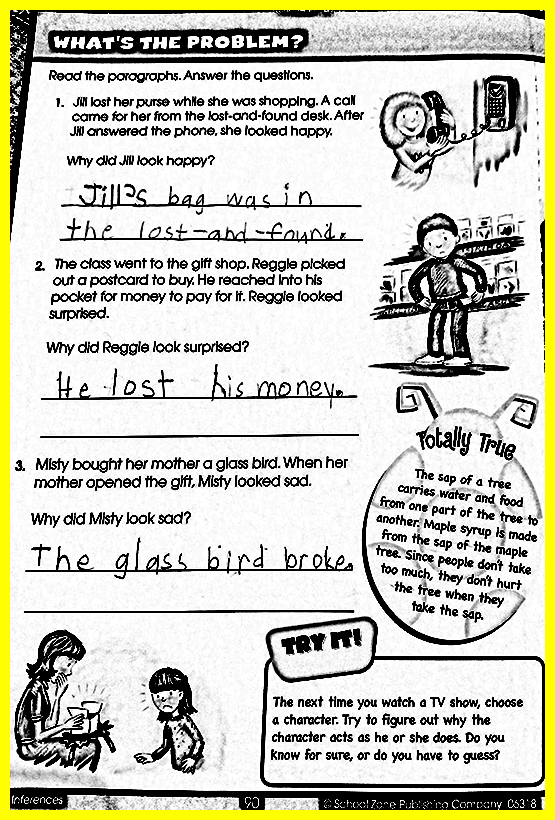 WHAT'S THE PROBLEM?
Read the paragraphs. Answer the questions.
1. Jill lost her purse while she was shopping. A call
came for her from the lost-and-found desk. After
Jill answered the phone, she looked happy.
Why did Jill look happy?
Jill's bag was in
the lost-and-found.
2. The class went to the gift shop. Reggie picked
out a postcard to buy. He reached into his
pocket for money to pay for it. Reggie looked
surprised.
Why did Reggie look surprised?
He lost his money.
3. Misty bought her mother a glass bird. When her
mother opened the gift, Misty looked sad.
Why did Misty look sad?
The glass bird broke.
Totally True
The sap of a tree
carries water and food
from one part of the tree to
another. Maple syrup is made
from the sap of the maple
tree. Since people don't take
too much, they don't hurt
the tree when they
take the sap.
TRY IT!
The next time you watch a TV show, choose
a character. Try to figure out why the
character acts as he or she does. Do you
know for sure, or do you have to guess?
Inferences
90
© School Zone Publishing Company 06318